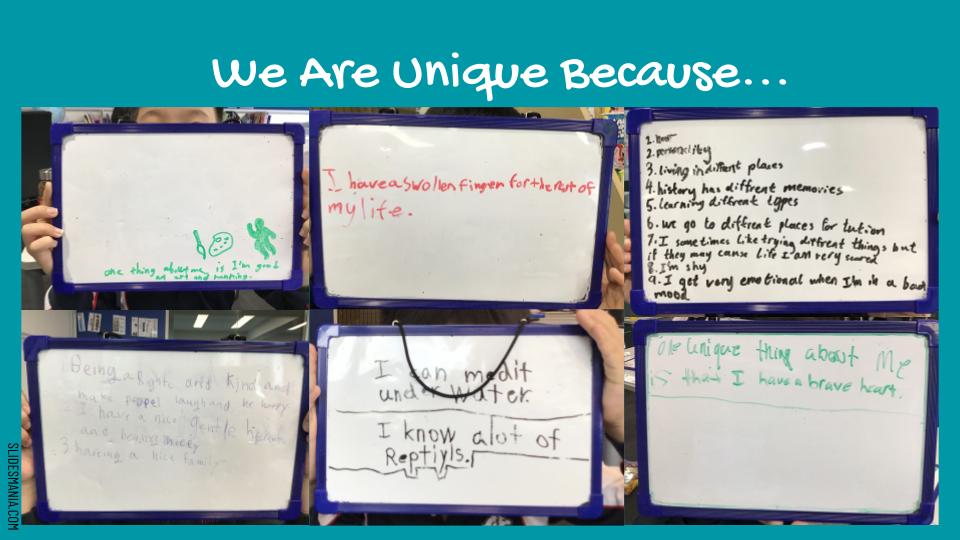 We Are Unique Because...
one thing about me is I'm good
an art and running.
I have a swollen finger for the rest of
my life.
1.
2. personality
3. living in diffrent places
4. history has diffrent memories
5. learning diffrent types
6. we go to diffrent places for tution
7. I sometimes like trying diffrent things but
if they may cause life I am very scared
8. I'm shy
9. I get very emotional when I'm in a bad
mood
Being a and kind and
make laugh and be
I have a nice gentle
and
3 having a nice family
I can medit
under water.
I know alot of
Reptiyls.
one unique thing about Me
is that I have a brave heart.
SLIDESMANIA.COM